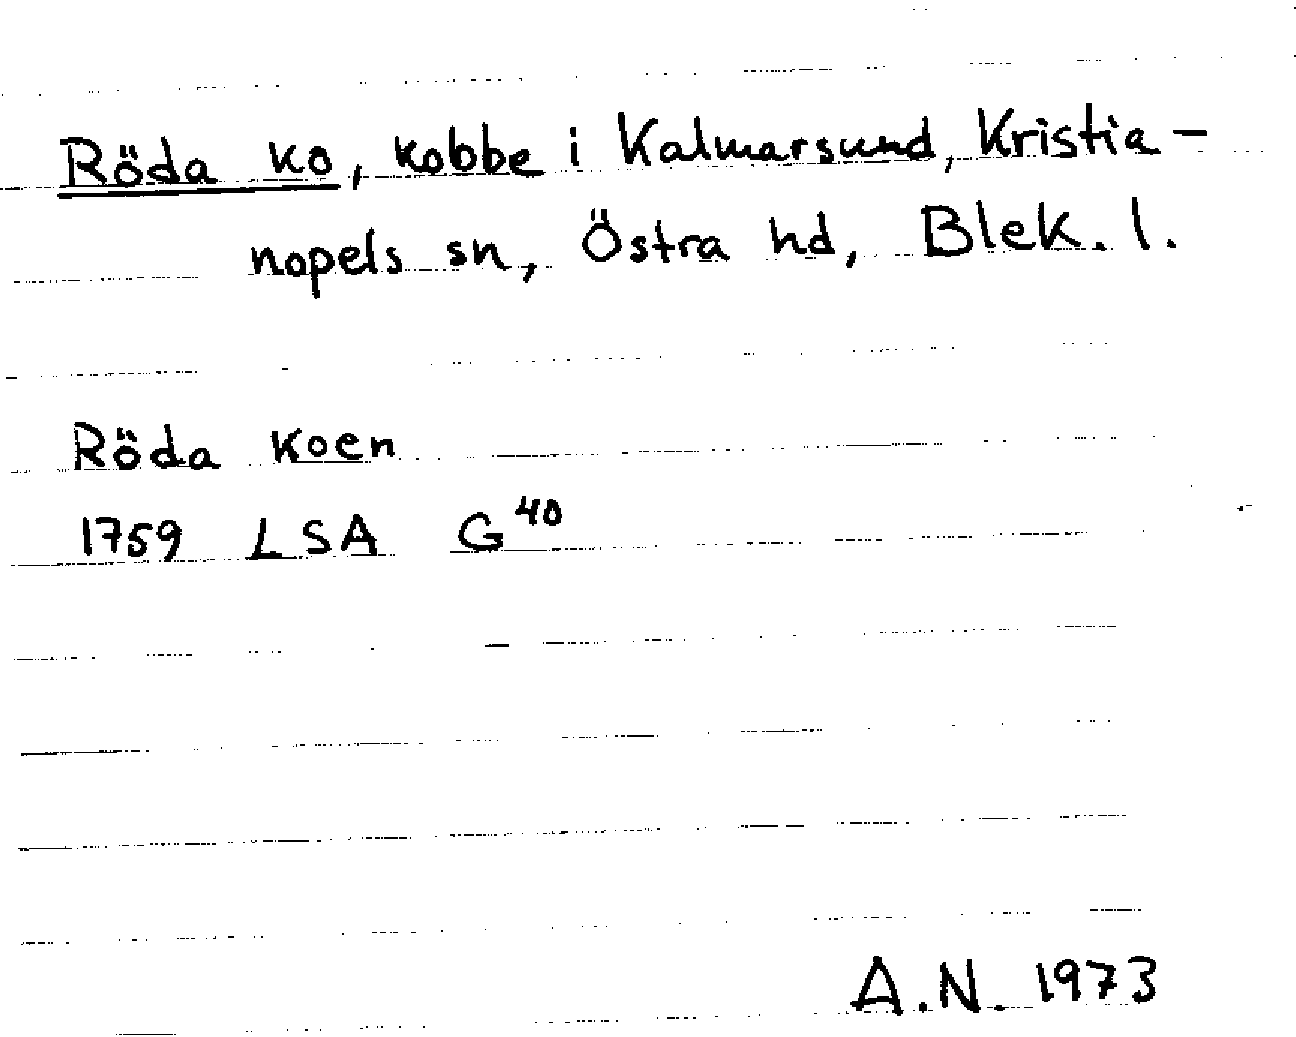 Röda ko, kobbe i Kalmarsund, Kristia-
nopels sn, Östra hd, Blek. l.
Röda koen
1759 LSA G40
A.N. 1973